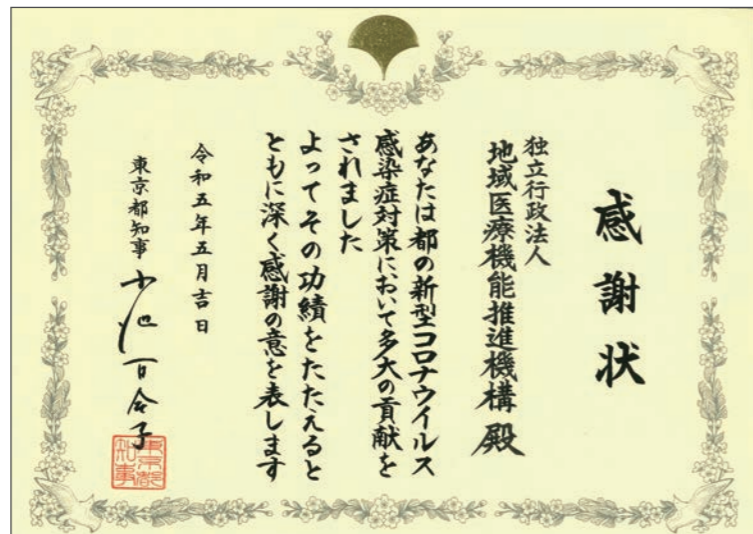 感謝状
独立行政法人
地域医療機能推進機構 殿
あなたは都の新型コロナウイルス
感染症対策において多大の貢献を
されました
よってその功績をたたえると
ともに深く感謝の意を表します
令和五年五月吉日
東京都知事 小池百合子
東京都
知事